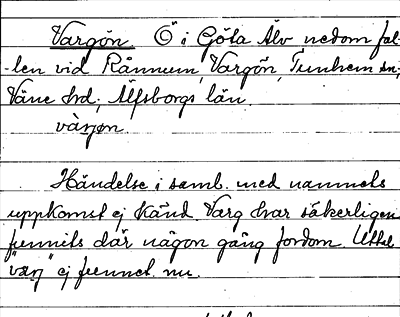 Vargön Ö i Göta Älv nedom fal-
-len vid Rånnum, Vargön, Tunhem sn;
Väne hrd; Älfsborgs län.
vàrjøn.
Händelse i samb. med namnets
uppkomst ej känd. Varg har säkerligen
funnits där någon gång fordom. Uttal
ej funnet nu.